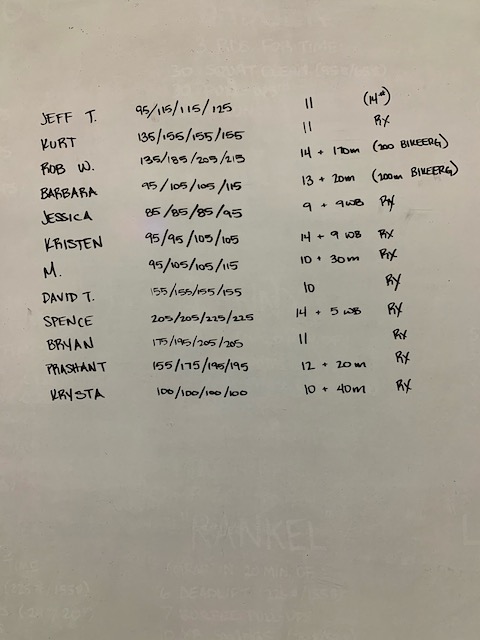 JEFF T. 95/115/115/125 11 (14#)
KURT 135/155/155/155 11 RX
ROB W. 135/185/205/215 14 + 170m (200 BIKEERG)
BARBARA 95/105/105/115 13 + 20m (200m BIKEERG)
JESSICA 85/85/85/95 9 + 9WB RX
KRISTEN 95/95/105/105 14 + 9 WB RX
M. 95/105/105/115 10 + 30m RX
DAVID T. 155/155/155/155 10 RX
SPENCE 205/205/225/225 14 + 5 WB RX
BRYAN 175/195/205/205 11 RX
PRASHANT 155/175/195/195 12 + 20m RX
KRYSTA 100/100/100/100 10 + 40m RX
RANKEL